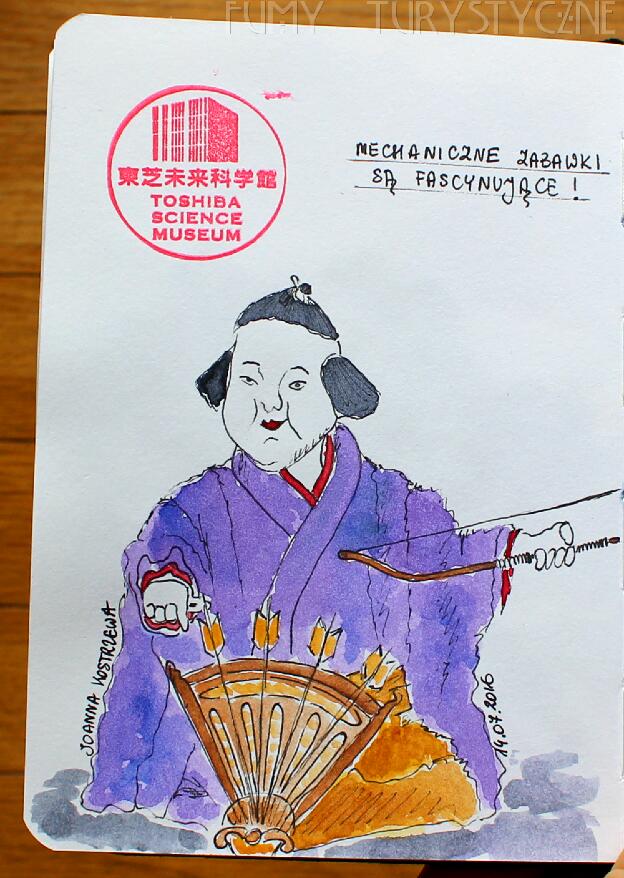 FUMY TURYSTYCZNE
東芝未来科学館
TOSHIBA
SCIENCE
MUSEUM
MECHANICZNE ZABAWKI
SĄ FASCYNUJĄCE!
JOANNA KOSTRZEWA
14.07.2016